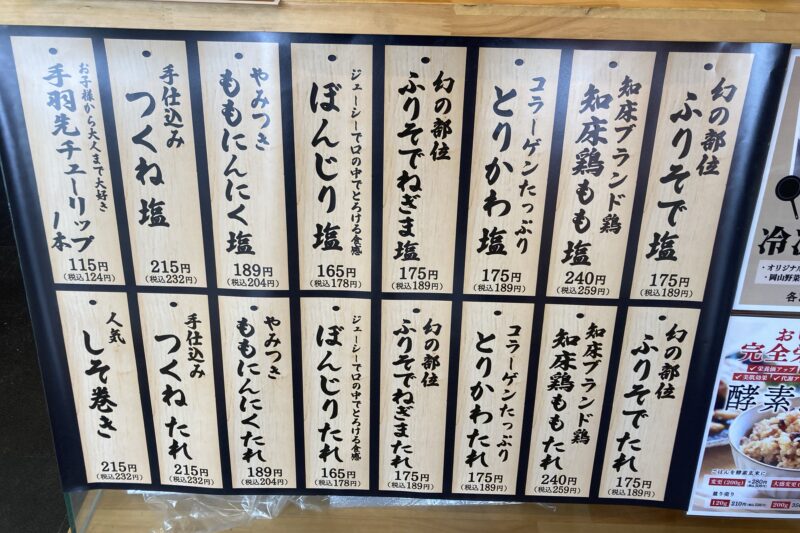 幻の部位
ふりそで塩
175円
(税込189円)
知床ブランド鶏
知床鶏もも塩
240円
(税込259円)
コラーゲンたっぷり
とりかわ塩
175円
(税込189円)
幻の部位
ふりそでねぎま塩
175円
(税込189円)
ジューシーで口の中でとろける食感
ぼんじり塩
165円
(税込178円)
やみつき
ももにんにく塩
189円
(税込204円)
手仕込み
つくね塩
215円
(税込232円)
お子様から大人まで大好き
手羽先チューリップ1本
115円
(税込124円)
幻の部位
ふりそでたれ
175円
(税込189円)
知床ブランド鶏
知床鶏ももたれ
240円
(税込259円)
コラーゲンたっぷり
とりかわたれ
175円
(税込189円)
幻の部位
ふりそでねぎまたれ
175円
(税込189円)
ジューシーで口の中でとろける食感
ぼんじりたれ
165円
(税込178円)
やみつき
ももにんにくたれ
189円
(税込204円)
手仕込み
つくねたれ
215円
(税込232円)
人気
しそ巻き
215円
(税込232円)
・オリジナル
・岡山野菜
完全栄
✓栄養価アップ
✓美肌効果
酵素
ごはんを酵素玄米に
変更(200g)
+280円
大盛変更
盛り盛り
120g
210円
200g